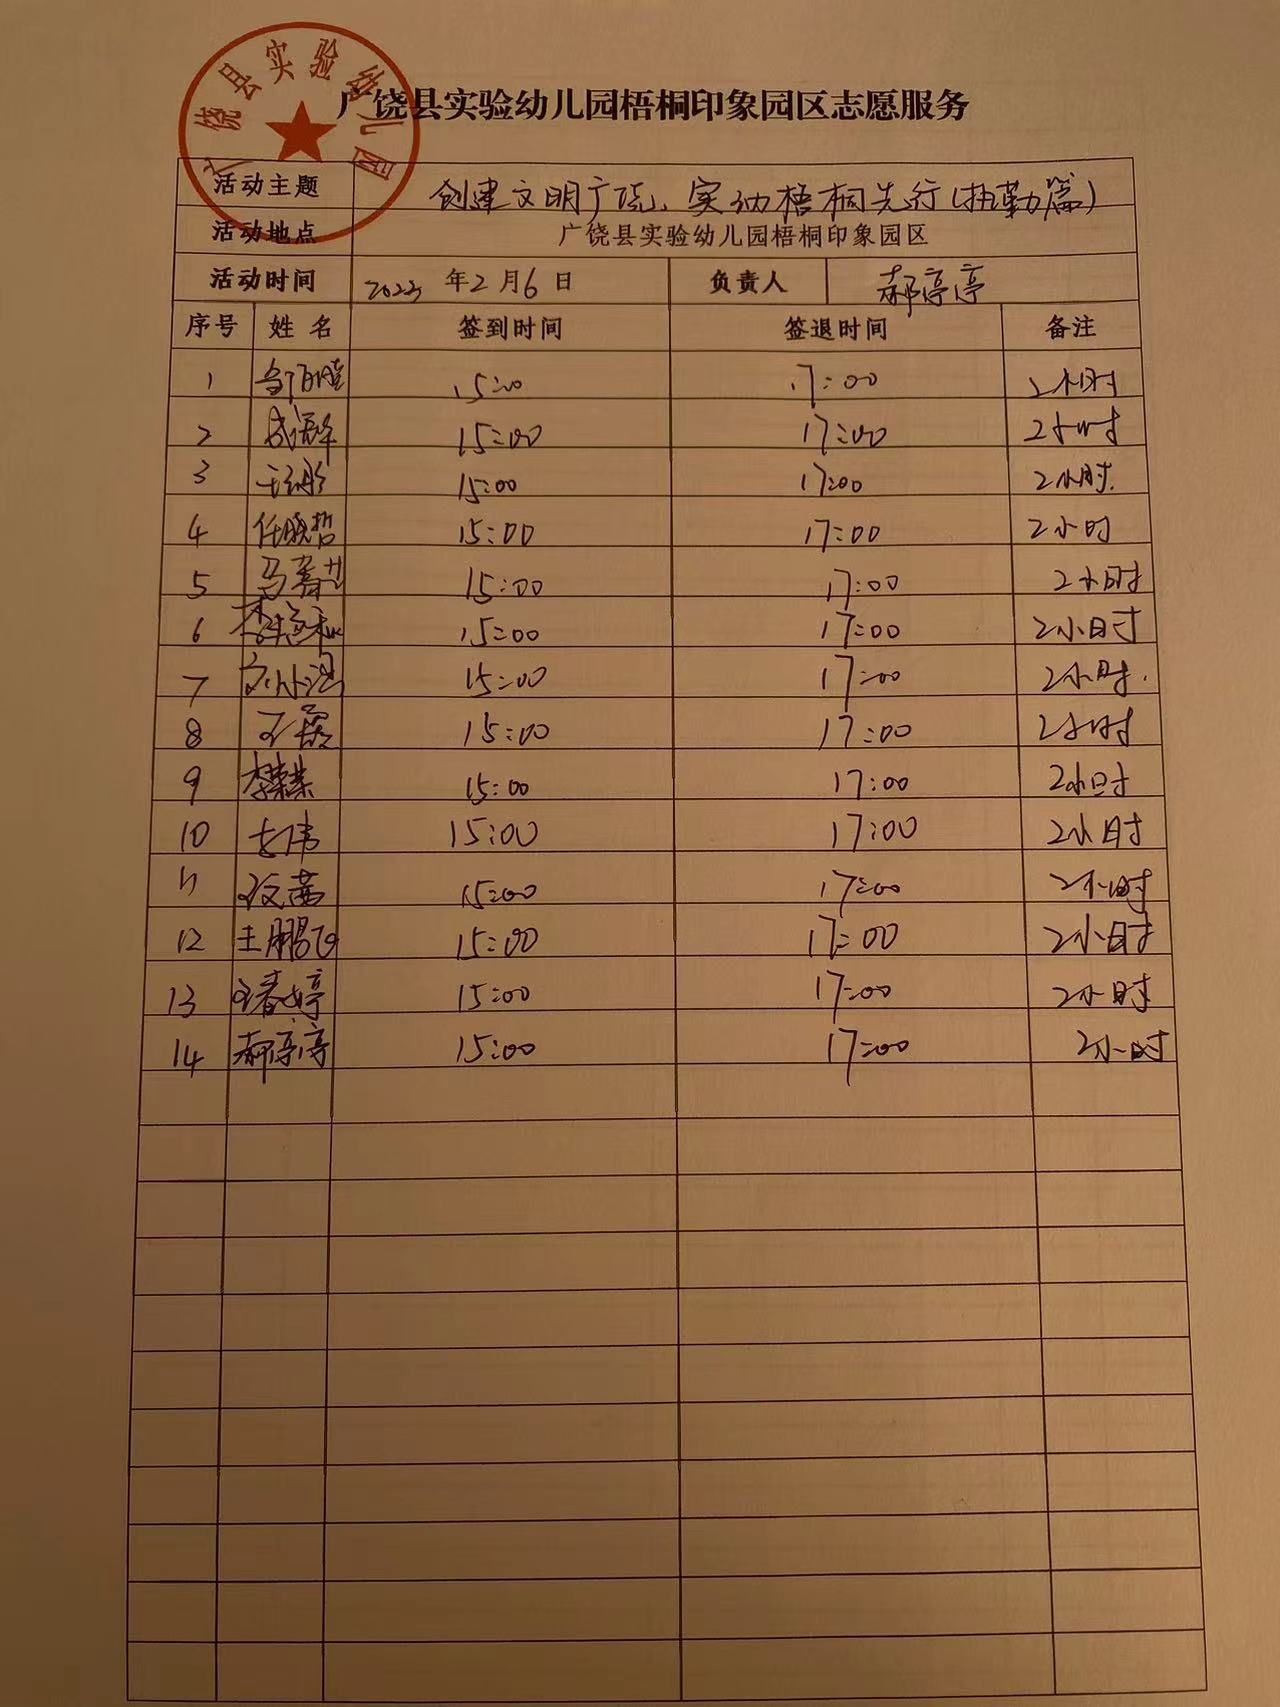 广饶县实验幼儿园
广饶县实验幼儿园梧桐印象园区志愿服务
活动主题 创建文明广饶,实幼梧桐先行(执勤篇)
活动地点 广饶县实验幼儿园梧桐印象园区
活动时间 2023年2月6日 负责人 郝亭亭
序号 姓名 签到时间 签退时间 备注
1 15:00 17:00 2小时
2 15:00 17:00 2小时
3 15:00 17:00 2小时
4 任晓哲 15:00 17:00 2小时
5 15:00 17:00 2小时
6 15:00 17:00 2小时
7 15:00 17:00 2小时
8 15:00 17:00 2小时
9 李荣荣 15:00 17:00 2小时
10 15:00 17:00 2小时
11 15:00 17:00 2小时
12 王鹏飞 15:00 17:00 2小时
13 王春婷 15:00 17:00 2小时
14 郝亭亭 15:00 17:00 2小时